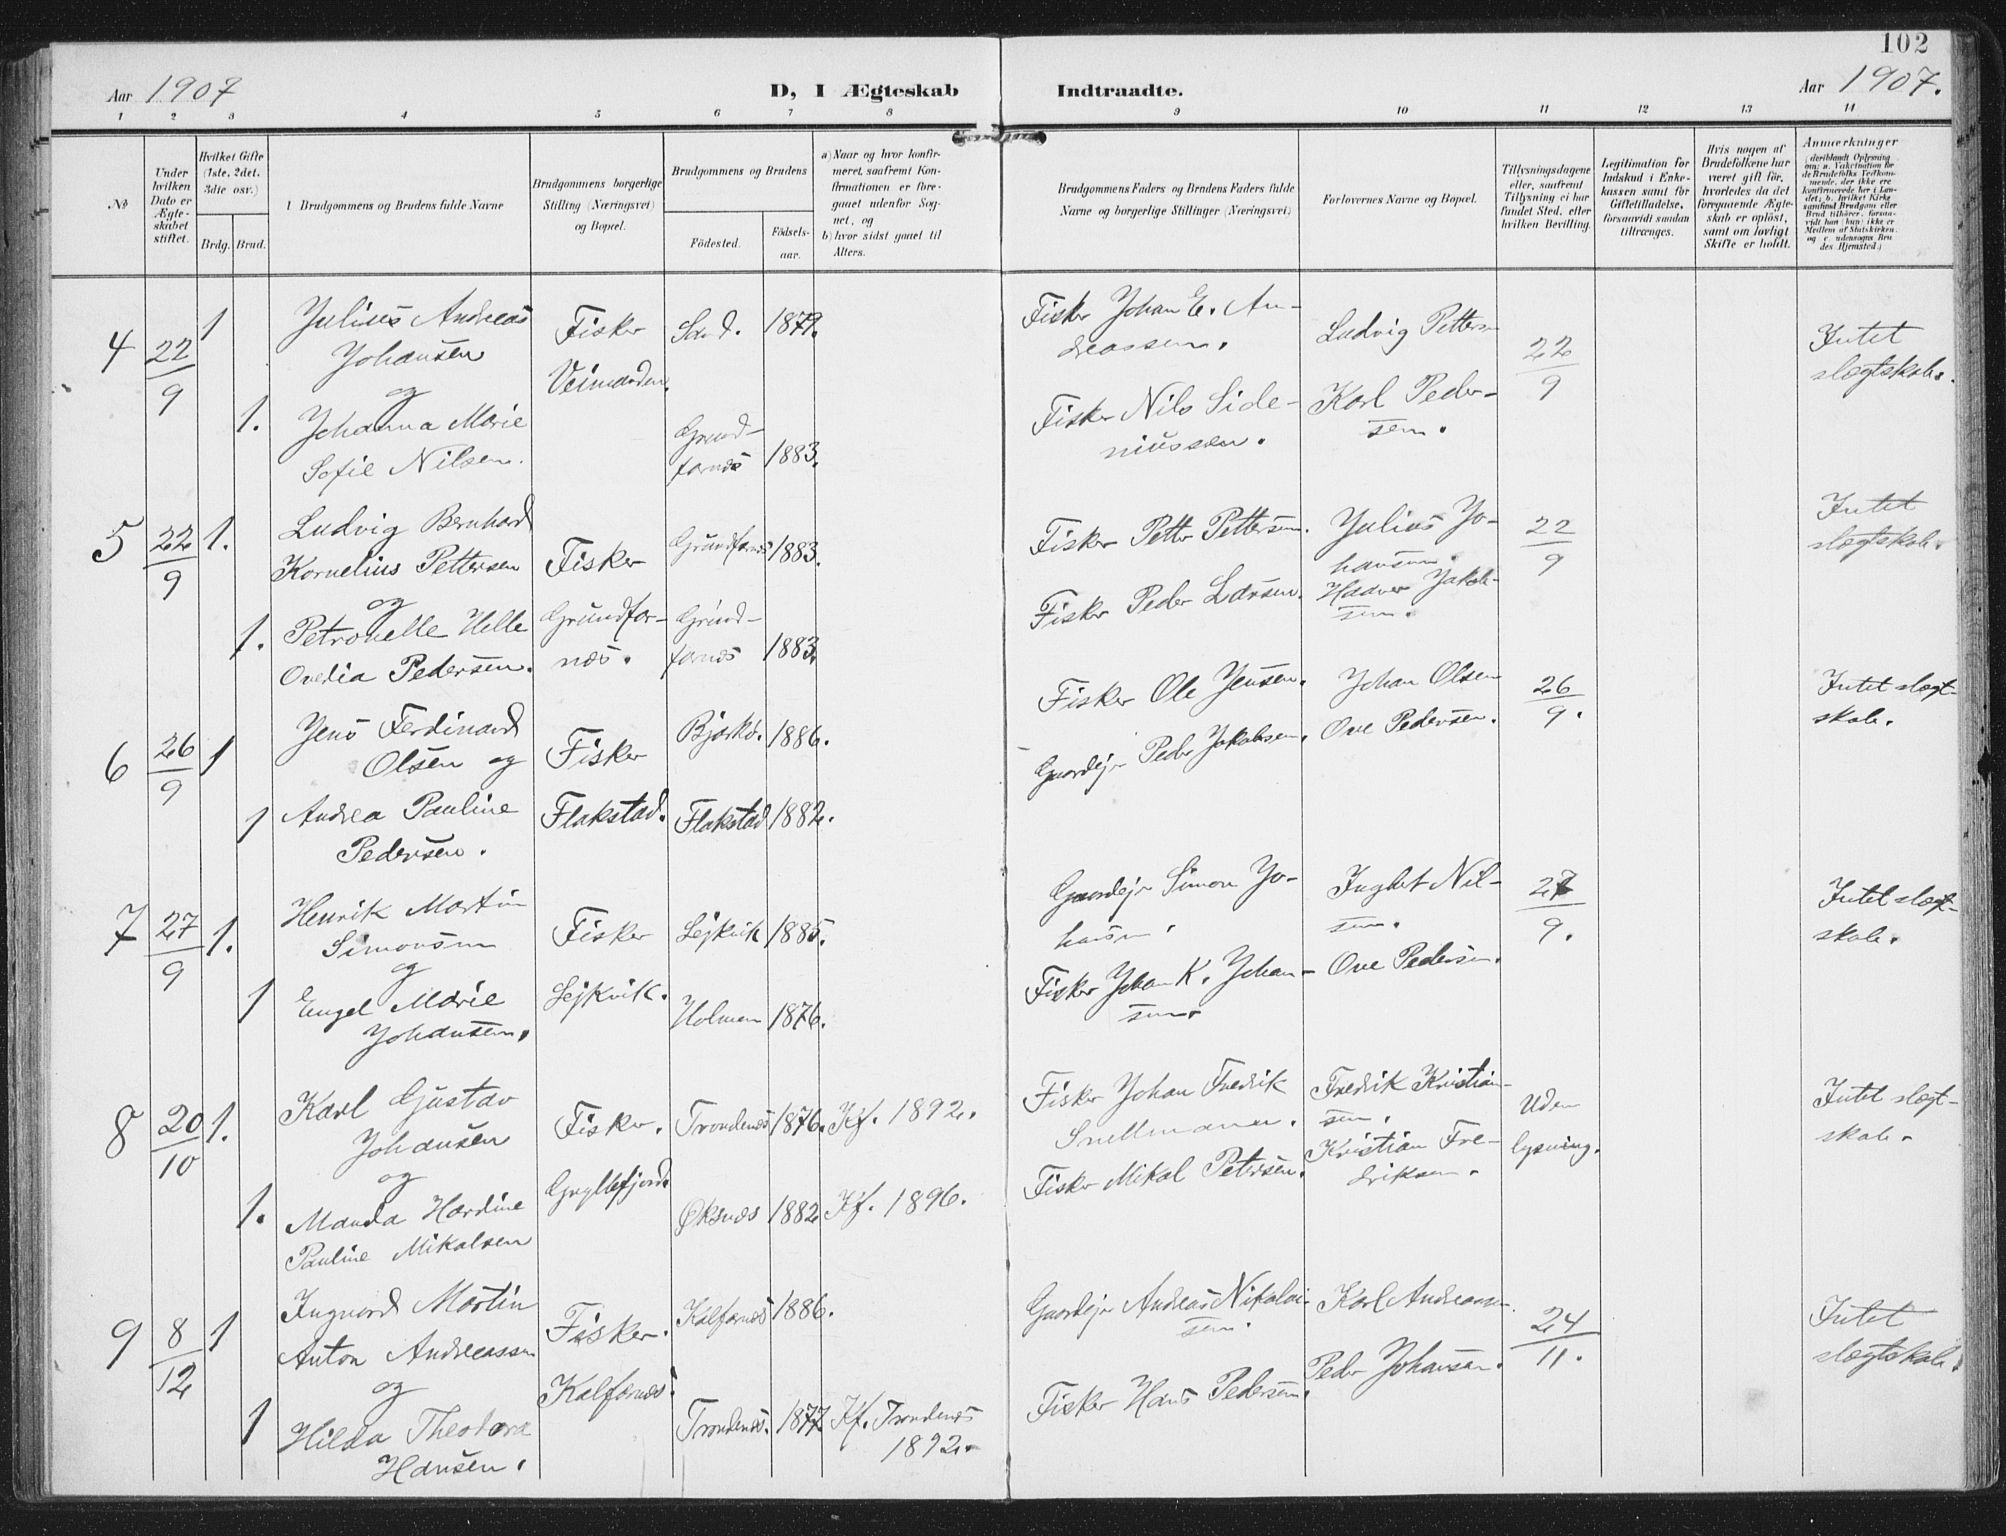 102
Aar 1907
D, I Ægteskab Indtraadte.
Aar 1907.
1 2 3 4 5 6 7 8 9 10 11 12 13 14
No
Under hvilken Dato er Ægteskabet stiftet.
Hvilket Gifte (1ste, 2det, 3die osv.)
Brdg. Brud.
Brudgommens og Brudens fulde Navne
Brudgommens borgerlige Stilling (Næringsvei) og Bopæl.
Brudgommens og Brudens
Fødested.
Fødselsaar.
a) Naar og hvor konfirmeret, saafremt Konfirmationen er foregaaet udenfor Sognet, og
b) hvor sidst gaaet til Alters.
Brudgommens Faders og Brudens Faders fulde Navne og borgerlige Stillinger (Næringsvei)
Forlovernes Navne og Bopæl.
Tillysningsdagene eller, saafremt Tillysning ei har fundet Sted, efter hvilken Bevilling.
Legitimation for Indskud i Enkekassen samt for Giftetilladelse, forsaavidt saadan tiltrænges.
Hvis nogen af Brudefolkene har været gift før, hvorledes da det foregaaende Ægteskab er opløst, samt om lovligt Skifte er holdt.
Anmærkninger
4 22/9 1 Julius Andreas
Johansen
og
1. Johanna Marie
Sofie Nilsen.
Fisker
Veimanden.
Sand. 1879.
Grundfarnes 1883.
Fisker Johan E. Andreassen.
Fisker Nils Sideniussen.
Ludvig Pettersen
Karl Pedersen.
22/9
Intet
slægtskab.
5 22/9 1. Ludvig Bernhard
Kornelius Pettersen
og
1. Petronelle Helle
Ovedia Pedersen.
Fisker
Grundfarnes.
Grundfarnes 1883.
Grundfarnes 1883.
Fisker Petter Pettersen.
Fisker Peder Larsen.
Julius Johansen
Haaver Jakobsen.
22/9
Intet
slægtskab.
6 26/9 1 Jens Ferdinand
Olsen og
1 Andrea Pauline
Pedersen.
Fisker
Flakstad.
Bjarkø. 1886.
Flakstad 1882.
Fisker Ole Jensen.
Gaardejr Peder Jakobsen.
Johan Olsen
Ove Pedersen.
26/9.
Intet slægtskab.
7 27/9 1. Henrik Martin
Simonsen
og
1 Engel Marie
Johansen.
Fisker
Lejkvik.
Lejkvik 1885.
Holmen 1876.
Gaardejr Simon Johansen.
Fisker Johan K. Johansen.
Ingbet Nilsen.
Ove Pedersen.
27/9.
Intet slægtskab.
8 20/10 1. Karl Gustav
Johansen
og
1. Manda Hardine
Pauline Mikalsen
Fisker.
Gryllefjord.
Trondenes 1876. Kf. 1892.
Øksnes 1882 Kf. 1896.
Fisker Johan Fredrik
Snellmaner.
Fisker Mikal Petersen.
Fredrik Kristiansen.
Kristian Fredriksen.
Uden
lysning.
Intet slægtskab.
9 8/12 1 Ingvard Martin
Anton Andreassen
og
1 Hilda Theodora
Hansen.
Fisker.
Kalfarnes.
Kalfarnes 1886.
Trondenes. 1877 Kf. Trondenes
1892.
Gaardejr Andreas Nikolaisen.
Fisker Hans Pedersen.
Karl Andreassen.
Peder Johansen.
24/11.
Intet
slægtskab.